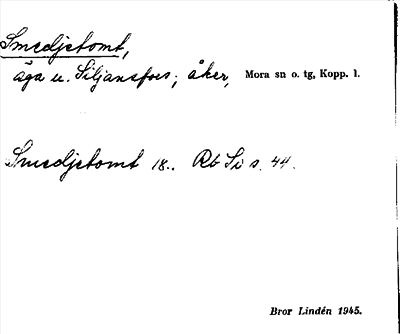 Smedjetomt,
äga u. Siljansfors; åker, Mora sn o. tg, Kopp. l.
Smedjetomt 18.. Rb Si s. 44.
Bror Lindén 1945.